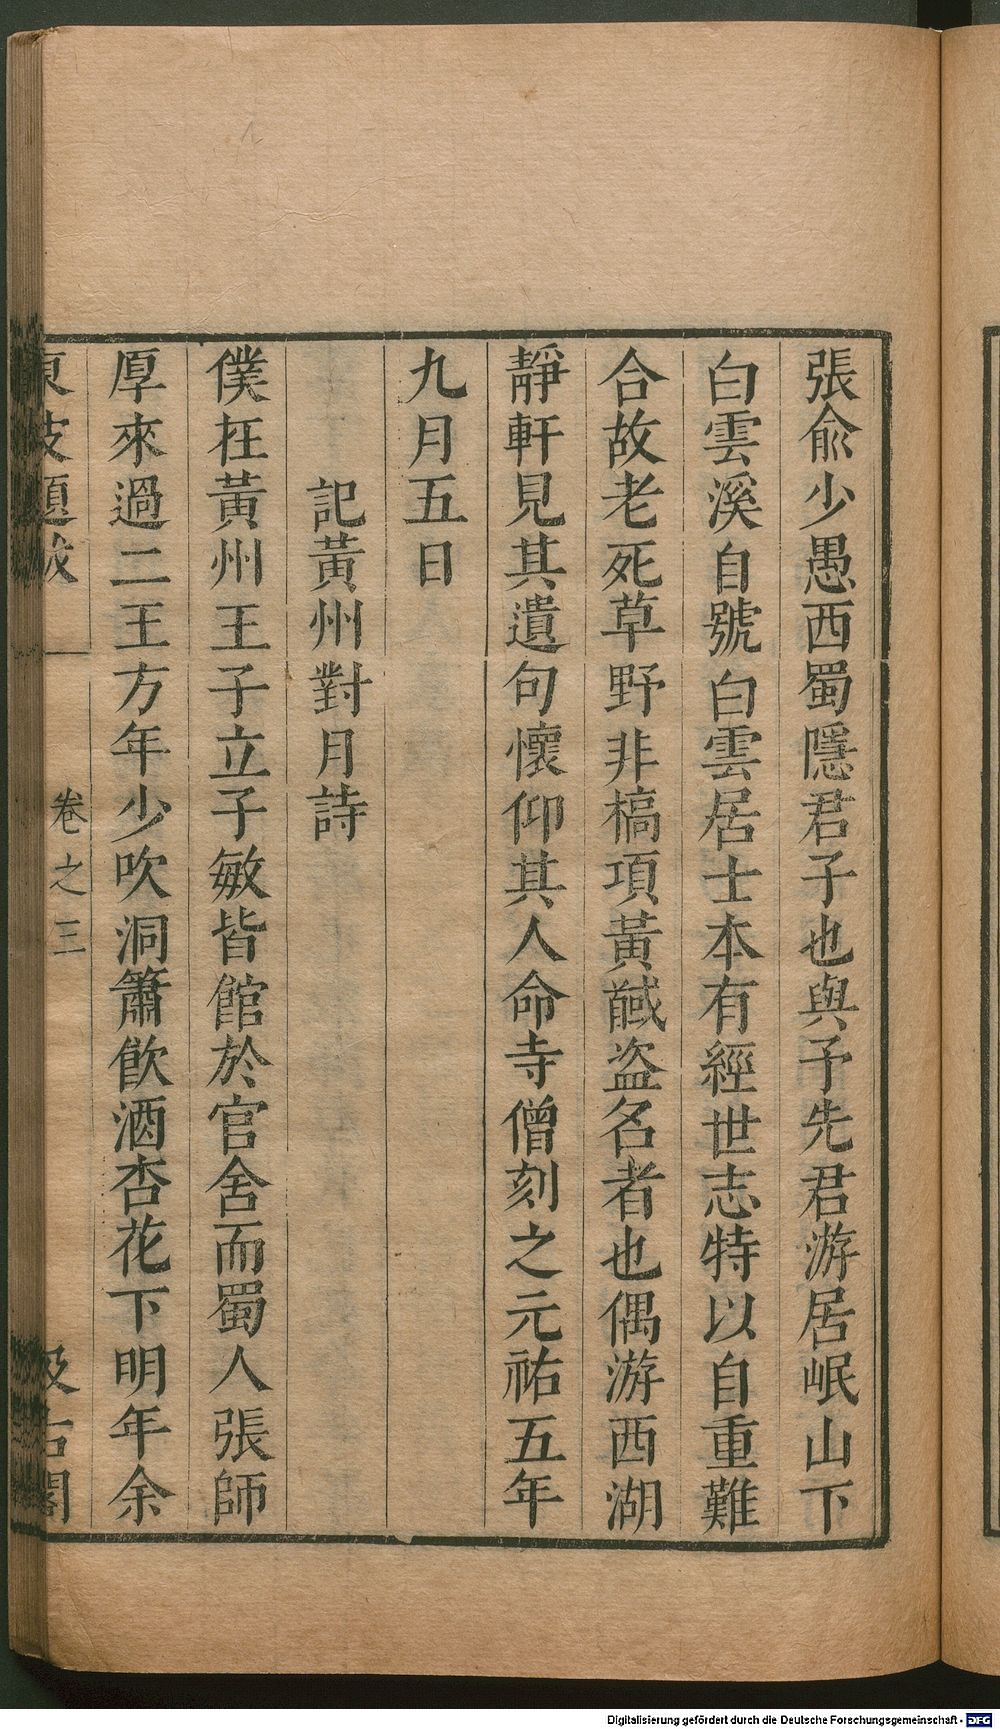 張俞少愚西蜀隱君子也與予先君游居岷山下
白雲溪自號白雲居士本有經世志特以自重難
合故老死草野非槁項黃馘盗名者也偶游西湖
靜軒見其遺句懷仰其人命寺僧刻之元祐五年
九月五日
記黃州對月詩
僕在黃州王子立子敏皆館於官舍而蜀人張師
厚來過二王方年少吹洞簫飲酒杏花下明年余
東坡題跋 卷之三 汲古閣
Digitalisierung gefördert durch die Deutsche Forschungsgemeinschaft - DFG